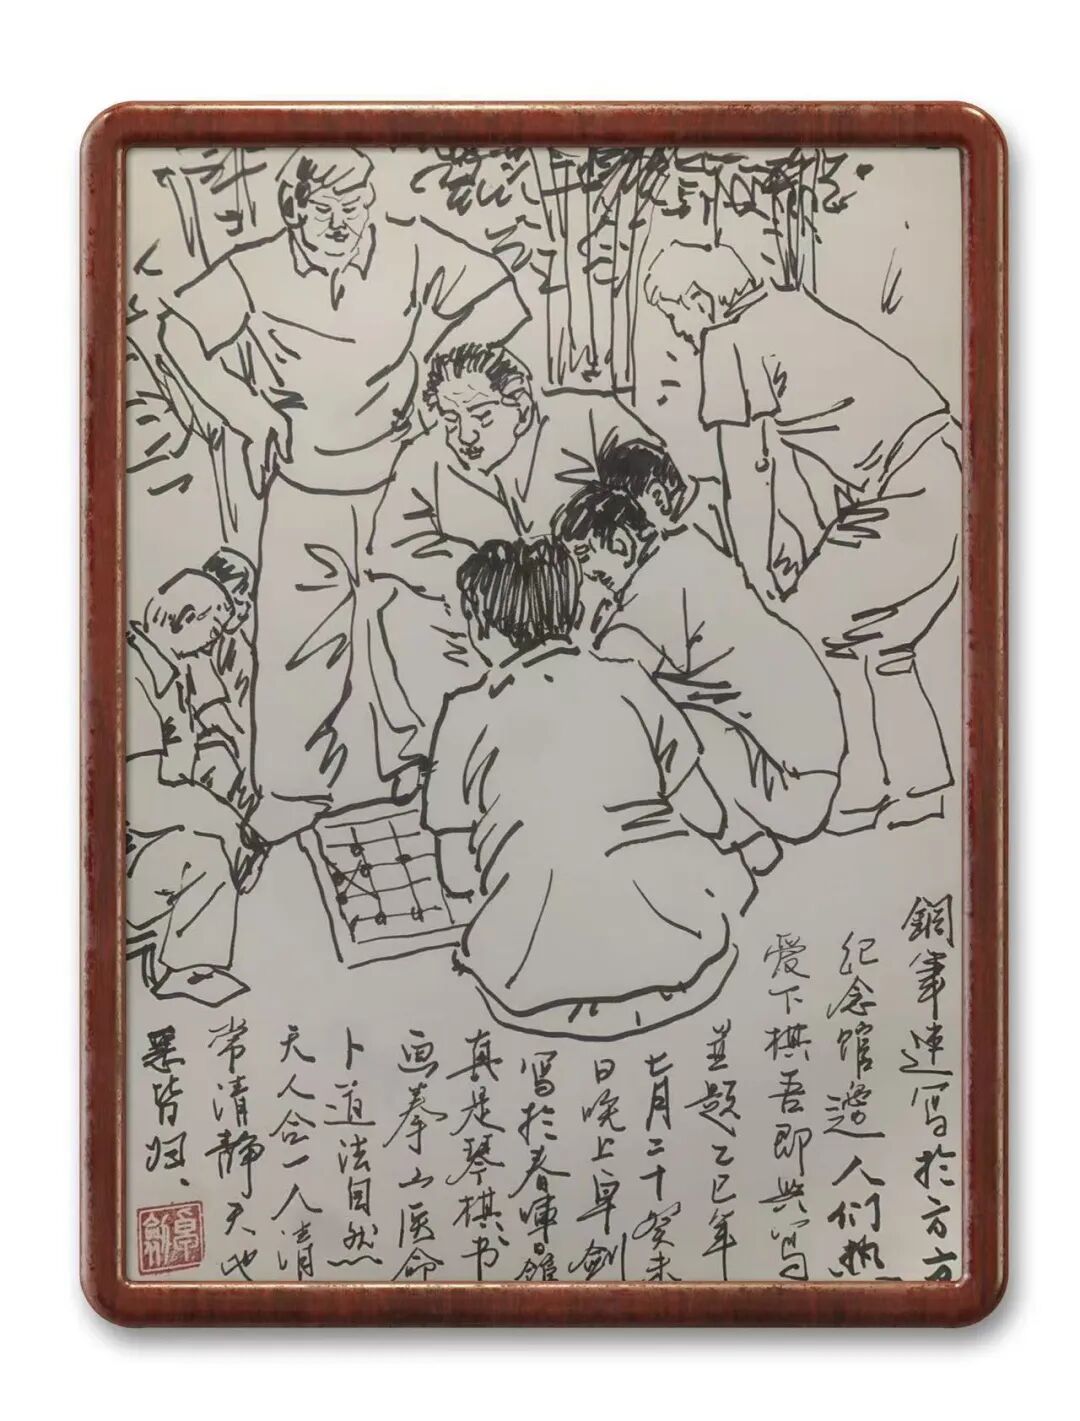 鋼筆速写於方方
纪念馆旁邊人们热
爱下棋吾即興写
並题乙巳年
七月二十癸未
日晚上卓剑
写於春暉舘
真是琴棋书
画拳山医命
卜道法自然
天人合一人能
常清静天地
悉皆归、